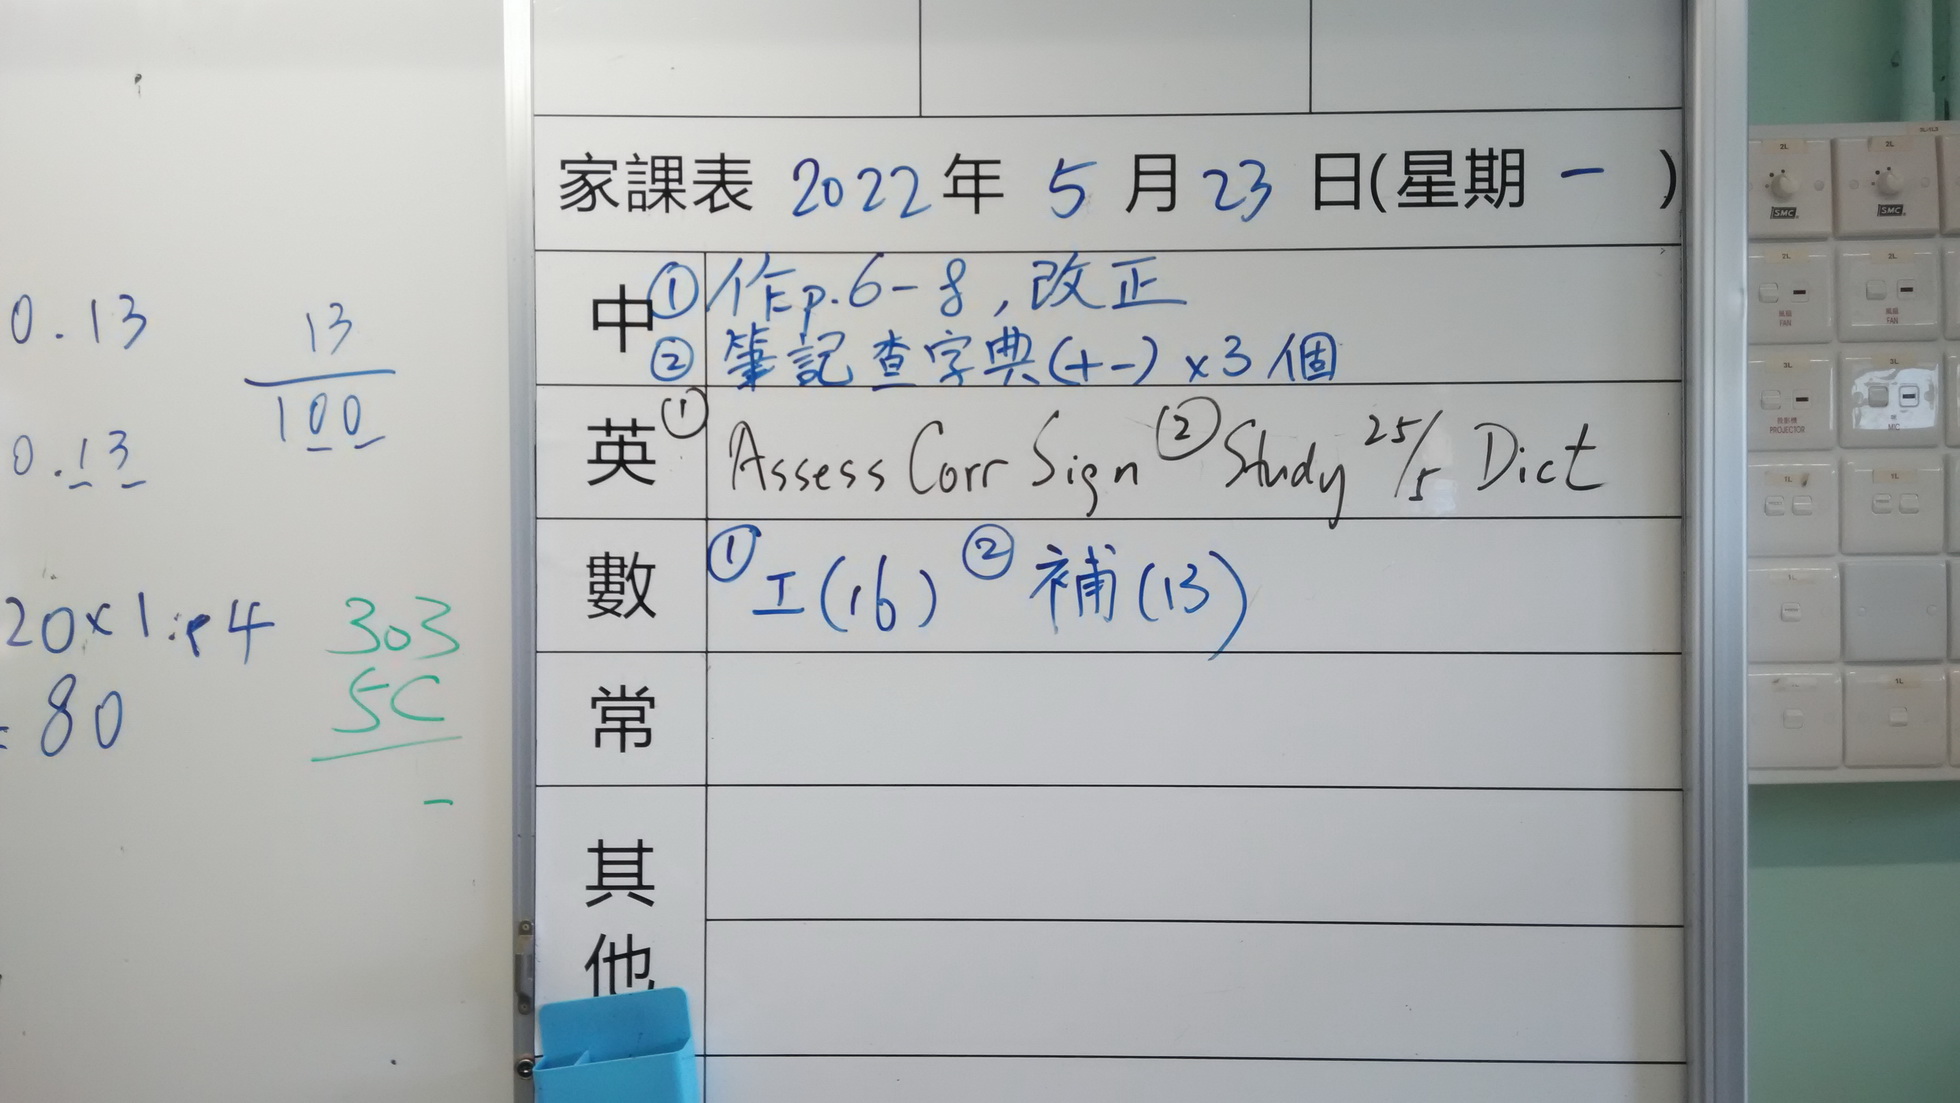 家課表 2022年 5月23日(星期一)
中 ①作p.6-8,改正
②筆記查字典(+-)×3個
英 ①Assess Corr Sign ②Study 25/5 Dict
數 ①工(16) ②補(13)
常
其他
0.13
13
100
0.13
80
303
5C
2L
2L
SMC
SMC
2L
2L
FAN
FAN
3L
3L
PROJECTOR
MIC
1L
1L
1L
1L